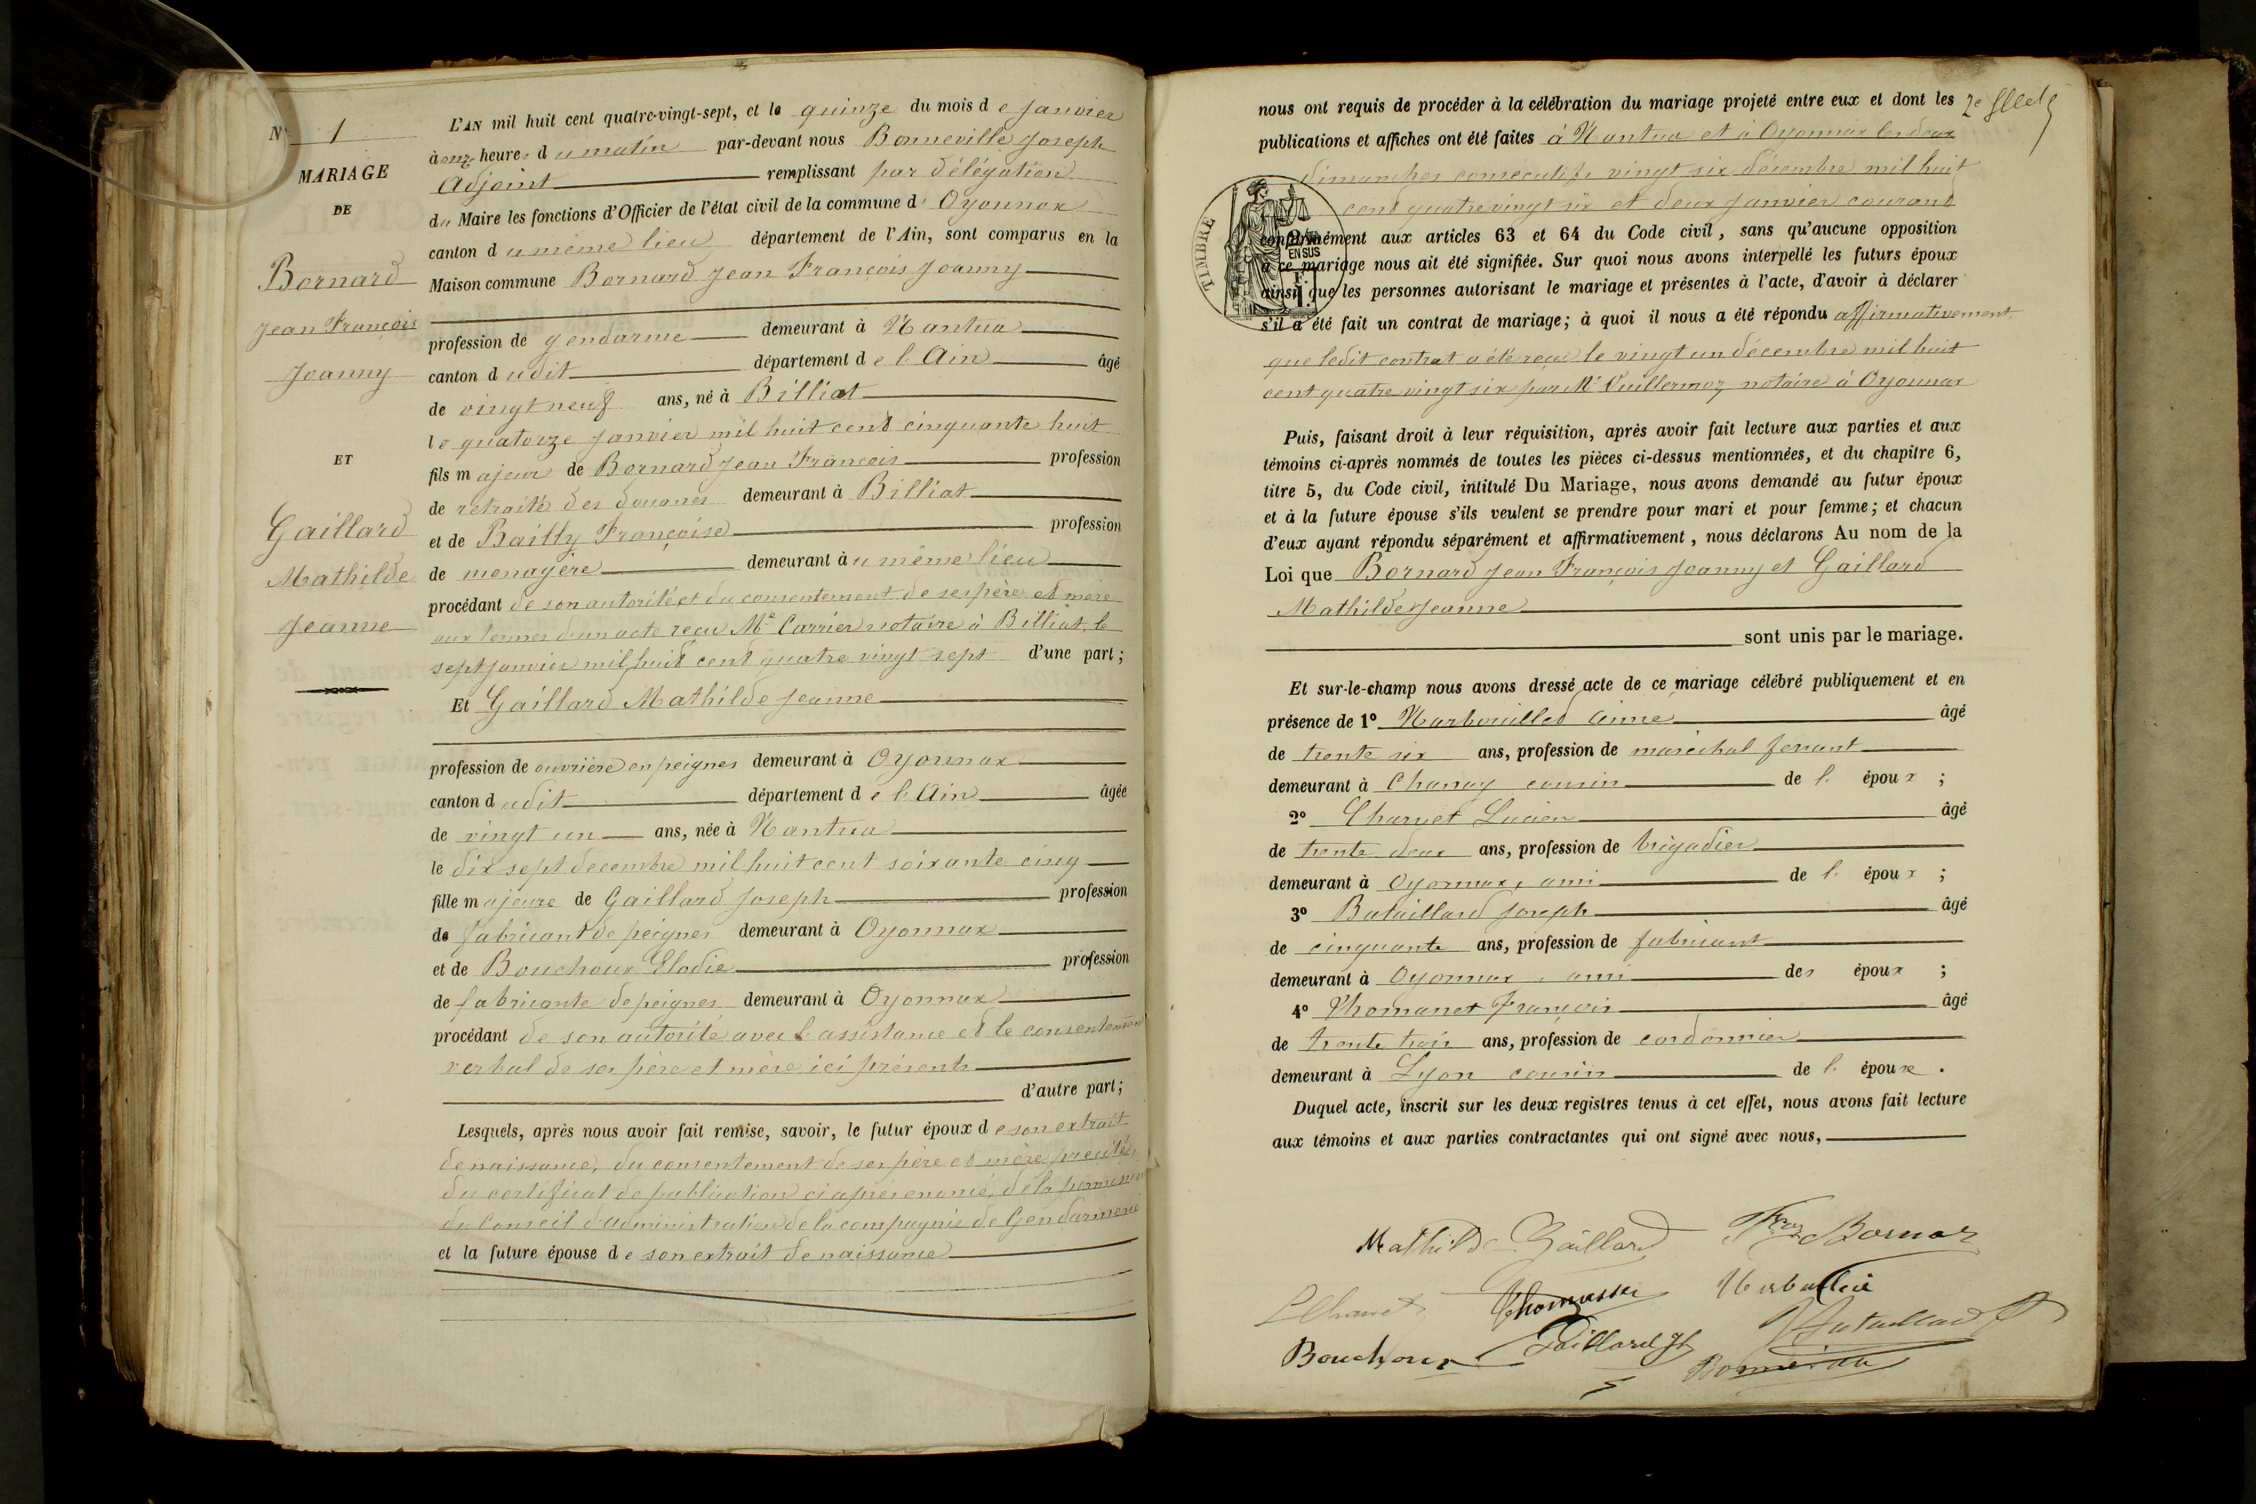 N° 1
MARIAGE
DE
Bornard
Jean François
Joanny
ET
Gaillard
Mathilde
Jeanne
L'AN mil huit cent quatre-vingt-sept, et le quinze du mois de Janvier
à onze heures du matin par-devant nous Bonneville Joseph
Adjoint remplissant par délégation
du Maire les fonctions d'Officier de l'état civil de la commune d' Oyonnax
canton du même lieu département de l'Ain, sont comparus en la
Maison commune Bornard Jean François Joanny
profession de gendarme demeurant à Nantua
canton dudit département de l'Ain âgé
de vingt neuf ans, né à Billiat
le quatorze Janvier mil huit cent cinquante huit
fils majeur de Bornard Jean François profession
de retraité des douanes demeurant à Billiat
et de Bailly Françoise profession
de menagère demeurant àu même lieu
procédant de son autorité et du consentement de ses père et mère
aux termes d'un acte reçu Me Carrier notaire à Billiat, le
sept janvier mil huit cent quatre vingt sept d'une part;
Et Gaillard Mathilde Jeanne
profession de ouvrière en peignes demeurant à Oyonnax
canton dudit département de l'Ain âgée
de vingt un ans, née à Nantua
le dix sept decembre mil huit cent soixante cinq
fille majeure de Gaillard Joseph profession
de fabricant de peignes demeurant à Oyonnax
et de Bouchoux Elodie profession
de fabricante de peignes demeurant à Oyonnax
procédant de son autorité avec l'assistance et le consentement
verbal de ses père et mère ici présents
d'autre part;
Lesquels, après nous avoir fait remise, savoir, le futur époux de son extrait
de naissance, du consentement de ses père et mère précités,
du certificat de publication ci après enoncé, de la permission
du Conseil d'administration de la compagnie de Gendarmerie
et la future épouse de son extrait de naissance
nous ont requis de procéder à la célébration du mariage projeté entre eux et dont les
publications et affiches ont été faites à Nantua et à Oyonnax les deux
dimanches consecutifs vingt six décembre mil huit
cent quatre vingt six et deux Janvier courant
TIMBRE
EN SUS
conformément aux articles 63 et 64 du Code civil, sans qu'aucune opposition
à ce mariage nous ait été signifiée. Sur quoi nous avons interpellé les futurs époux
ainsi que les personnes autorisant le mariage et présentes à l'acte, d'avoir à déclarer
s'il a été fait un contrat de mariage; à quoi il nous a été répondu affirmativement
que ledit contrat a été reçu le vingt un décembre mil huit
cent quatre vingt six par Me Vuillermoz notaire à Oyonnax
Puis, faisant droit à leur réquisition, après avoir fait lecture aux parties et aux
témoins ci-après nommés de toutes les pièces ci-dessus mentionnées, et du chapitre 6,
titre 5, du Code civil, intitulé Du Mariage, nous avons demandé au futur époux
et à la future épouse s'ils veulent se prendre pour mari et pour femme; et chacun
d'eux ayant répondu séparément et affirmativement, nous déclarons Au nom de la
Loi que Bornard Jean François Joanny et Gaillard
Mathilde Jeanne
sont unis par le mariage.
Et sur-le-champ nous avons dressé acte de ce mariage célébré publiquement et en
présence de 1° âgé
de trente six ans, profession de maréchal ferrant
demeurant à Chanay cousin de l' époux ;
2° Charvet Lucien âgé
de trente deux ans, profession de brigadier
demeurant à Oyonnax, ami de l' époux ;
3° Bataillard Joseph âgé
de cinquante ans, profession de fabricant
demeurant à Oyonnax, ami des époux ;
4° François âgé
de trente trois ans, profession de cordonnier
demeurant à Lyon cousin de l' épouse .
Duquel acte, inscrit sur les deux registres tenus à cet effet, nous avons fait lecture
aux témoins et aux parties contractantes qui ont signé avec nous,
Mathilde Gaillard Bornar
LCharvet
Bouchoux Gaillard Jh Bataillard
Bonneville